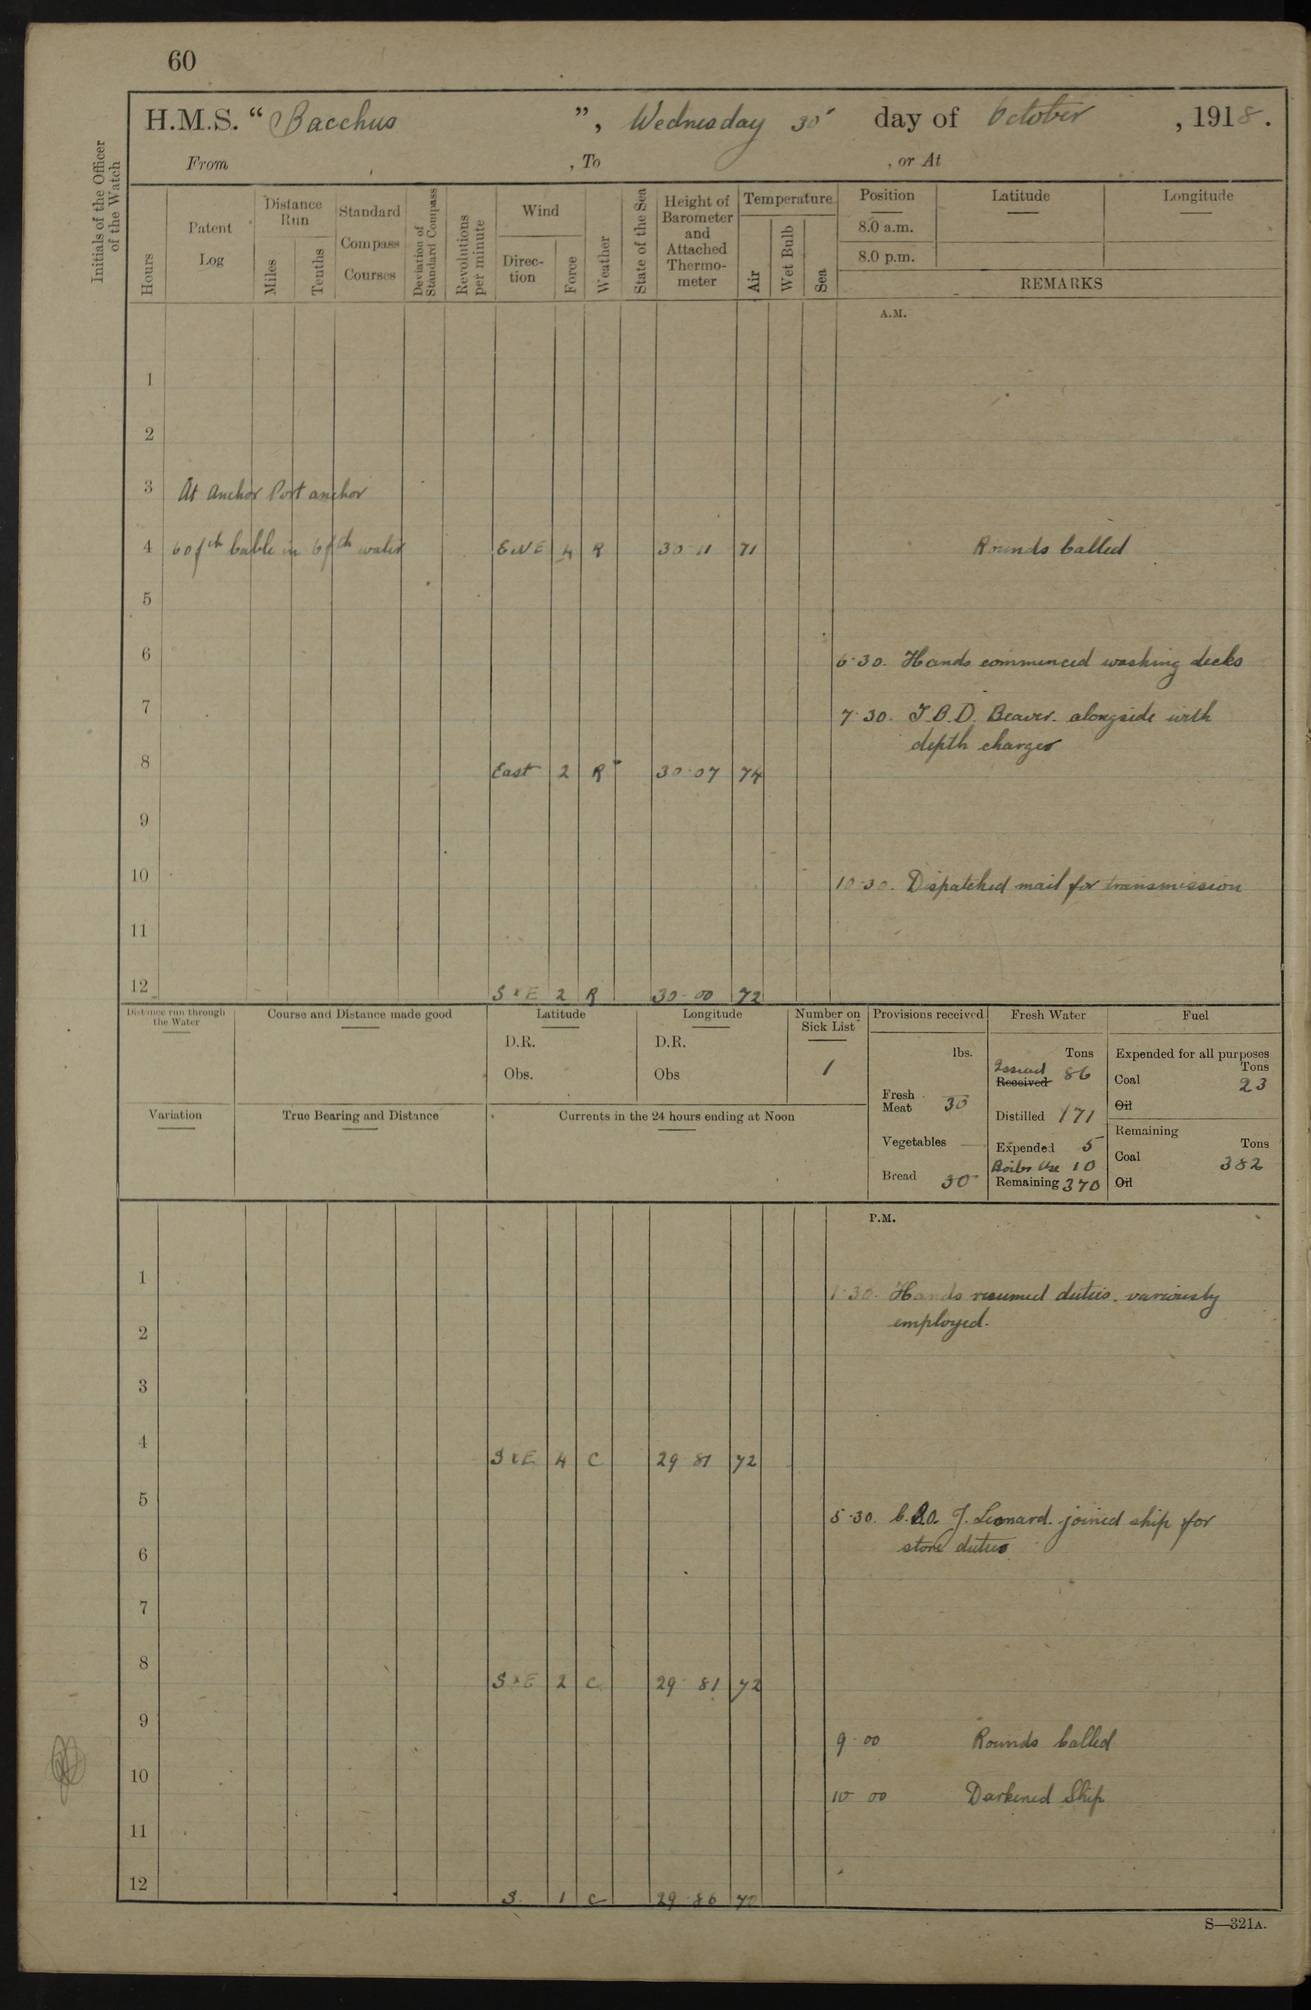 60
H.M.S. “ Bacchus ”, Wednesday 30 day of October , 1918.
From , To , or At
Initials of the Officer of the Watch
Hours
Patent Log
Distance Run
Miles
Tenths
Standard Compass Courses
Deviation of Standard Compass
Revolutions per minute
Wind
Direc-tion
Force
Weather
State of the Sea
Height of Barometer and Attached Thermo-meter
Temperature
Air
Wet Bulb
Sea
Position Latitude Longitude
8.0 a.m.
8.0 p.m.
REMARKS
A.M.
1
2
3 At anchor Port anchor
4 60 fth Cable in 6 fth water ENE 4 R 30 11 71 Rounds Called
5
6 6·30. Hands commenced washing decks
7 7·30. T.B.D. Beaver. alongside with
depth charges
8 East 2 R 30·07 74
9
10 10·30. Dispatched mail for transmission
11
12 SxE 2 R 30·00 72
Distance run through the Water
Course and Distance made good
Latitude
D.R.
Obs.
Longitude
D.R.
Obs
Number on Sick List
1
Variation
True Bearing and Distance
Currents in the 24 hours ending at Noon
Provisions received
lbs.
Fresh Meat 30
Vegetables —
Bread 30
Fresh Water
Tons
Issued 86
Received
Distilled 171
Expended 5
Boiler Use 10
Remaining 370
Fuel
Expended for all purposes
Tons
Coal 23
Oil
Remaining
Tons
Coal 382
Oil
P.M.
1 1·30. Hands resumed duties. variously
employed.
2
3
4 SxE 4 C 29 81 72
5 5·30. J. Leonard. joined ship for
store duties
6
7
8 SxE 2 C 29 81 72
9 9·00 Rounds Called
10 10 00 Darkened Ship
11
12 S. 1 C 29·86 70
S—321A.